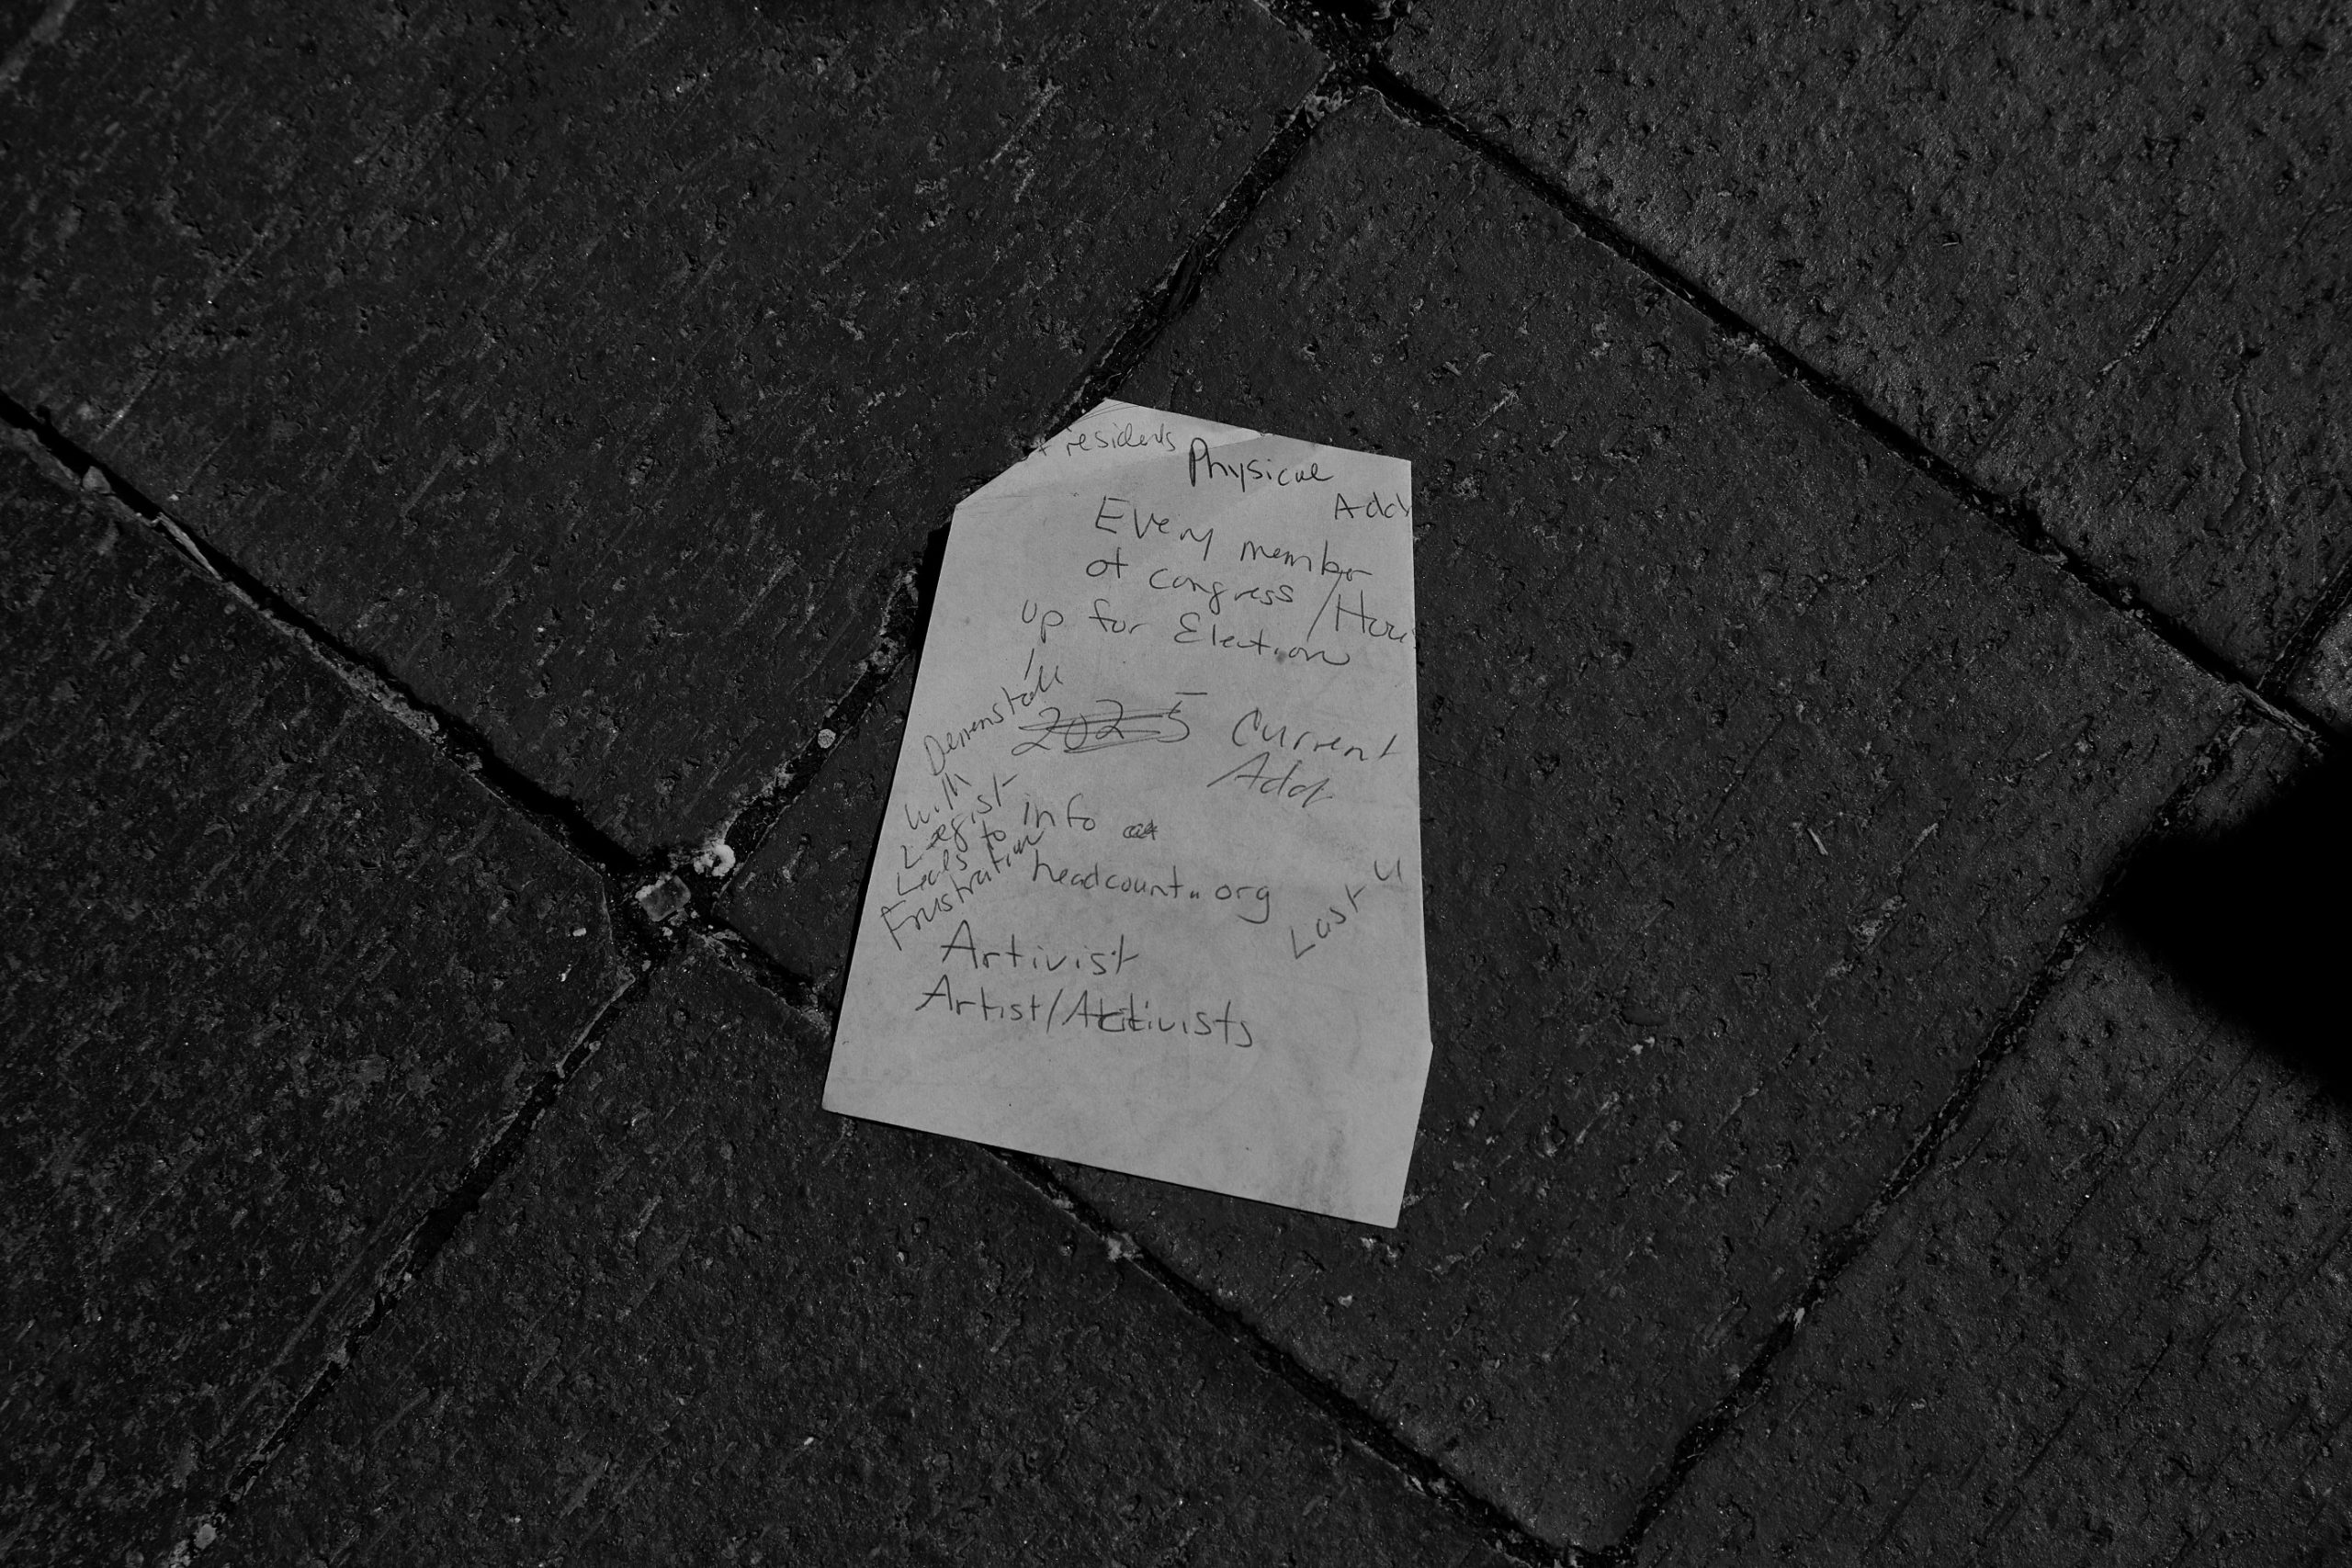 residents
Physical
Add
Every member
of congress / Hou
up for Election
2025
Current
Add
Demonstrate
with
Legist
Leads to
Frustration
info at
headcount.org
Last 4
Artivist
Artist/Activists